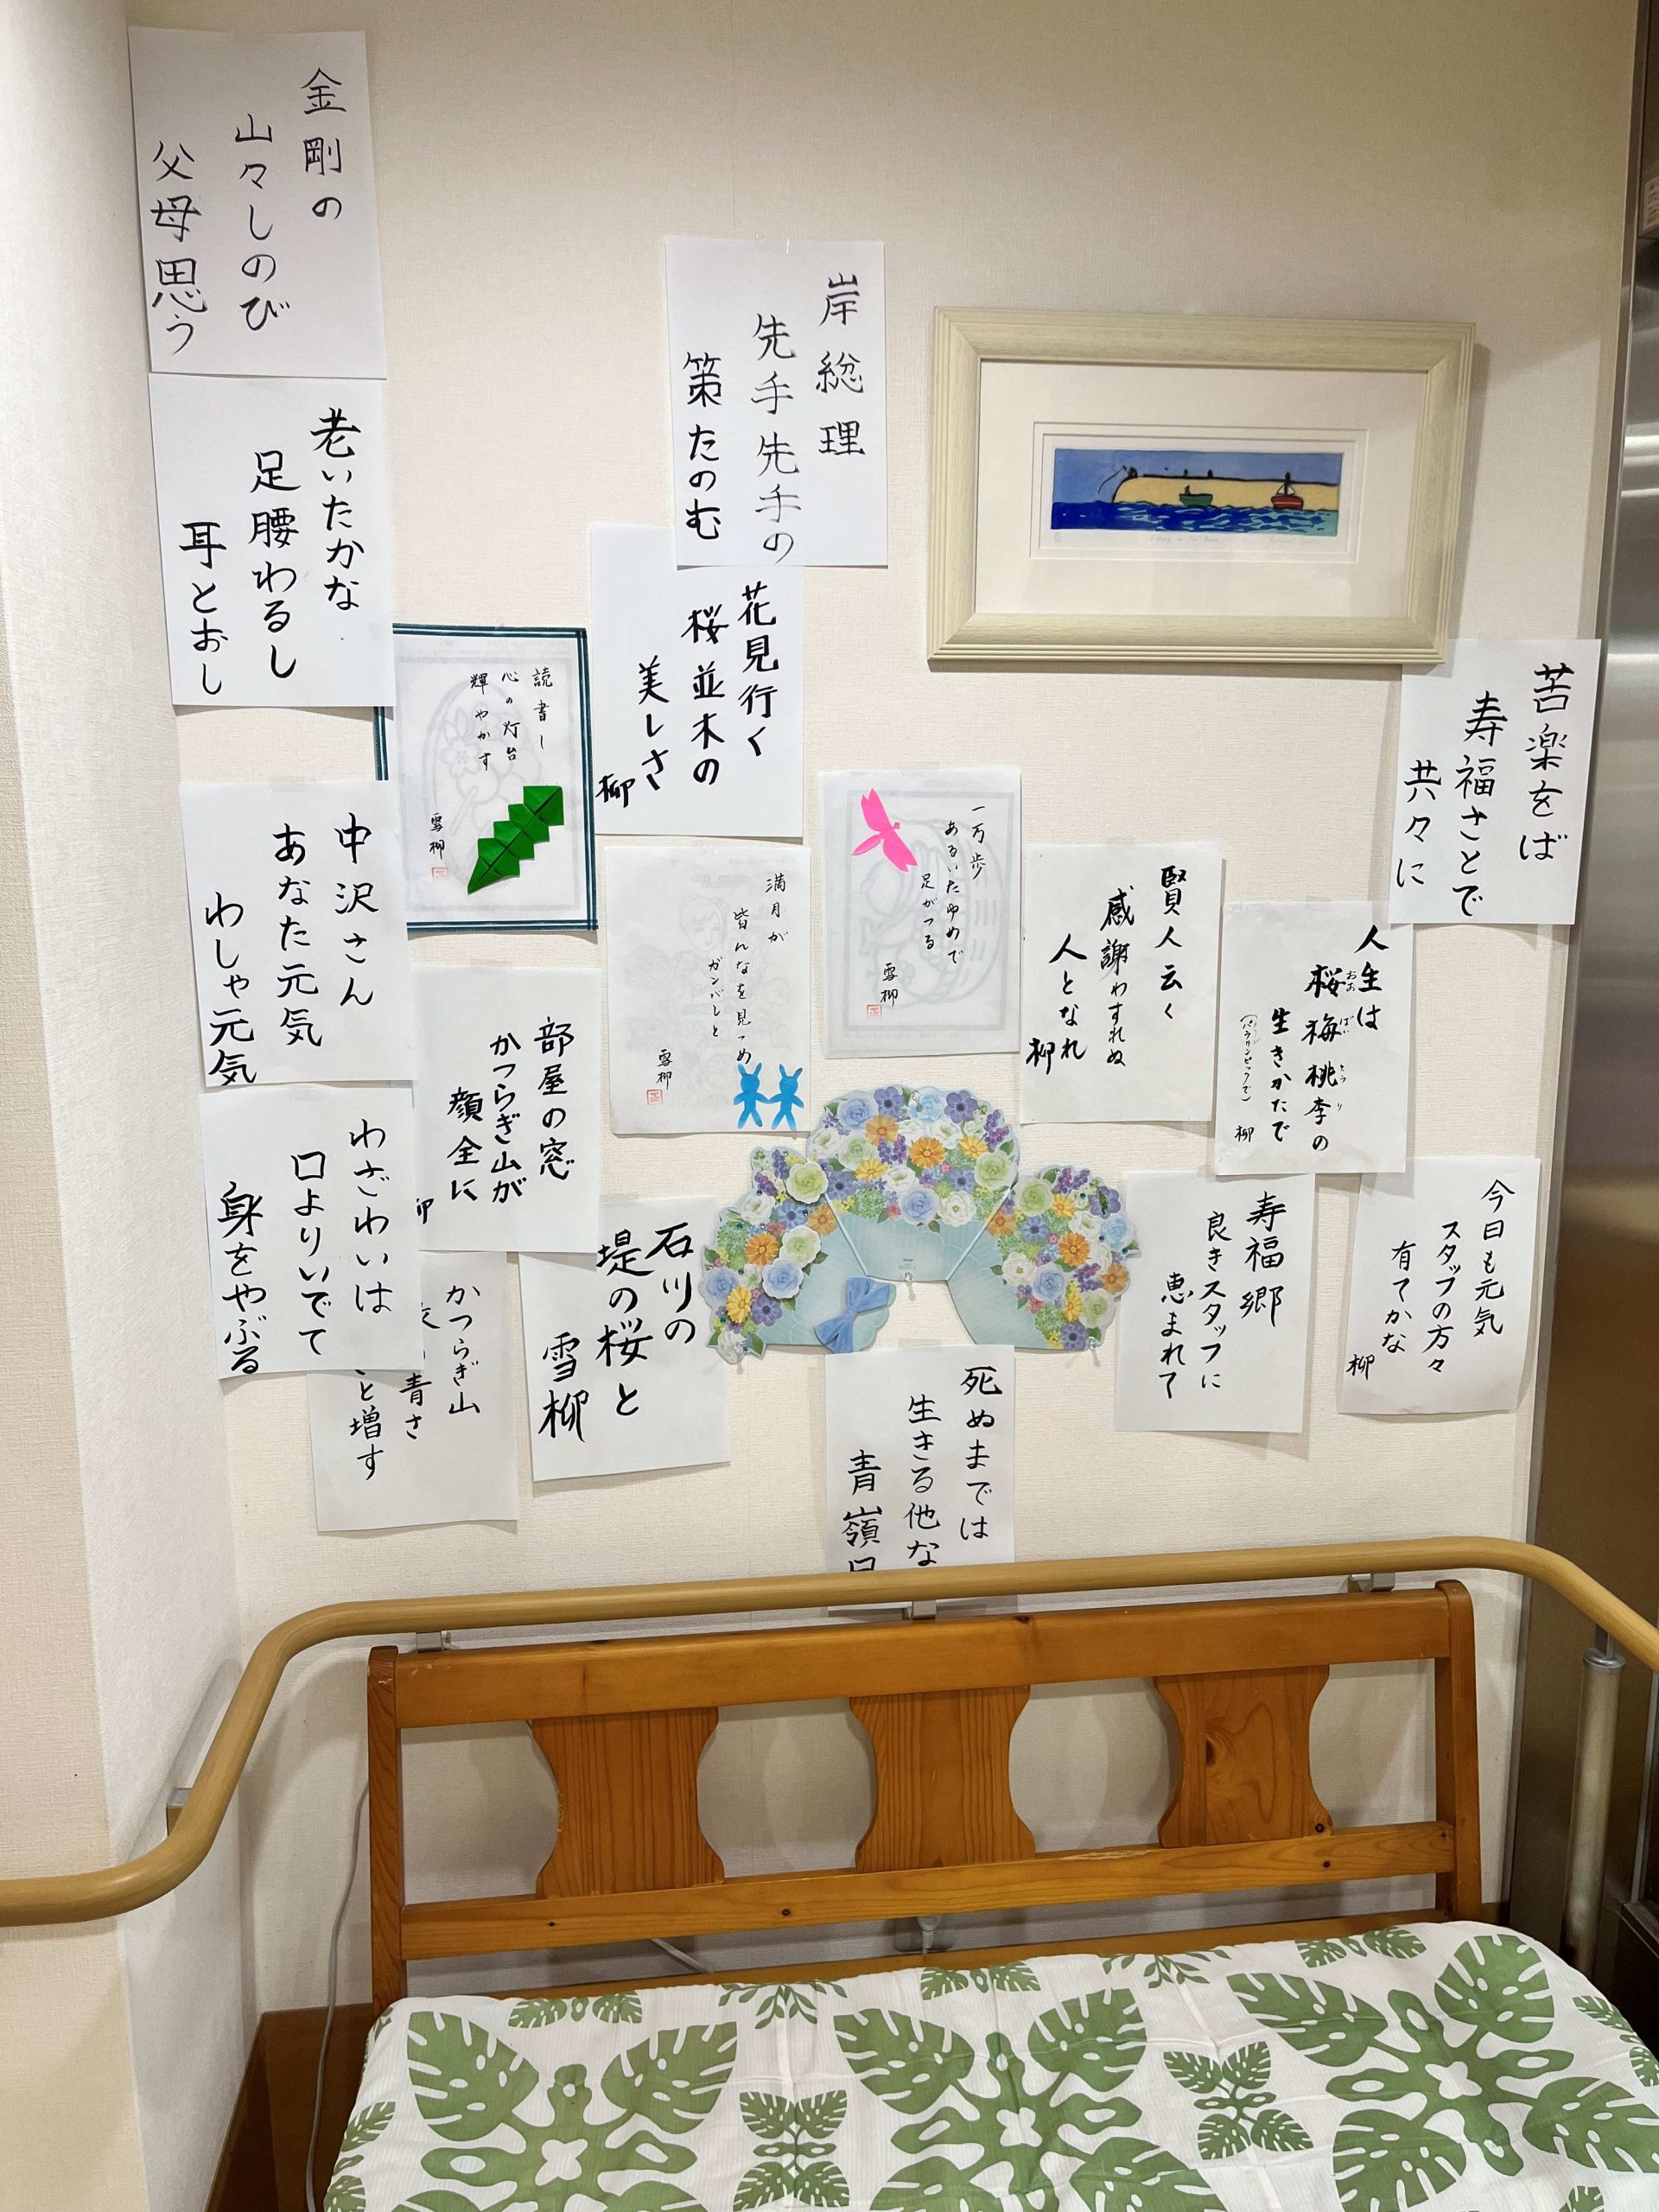 金剛の
山々しのび
父母思う
老いたかな
足腰わるし
耳とおし
岸総理
先手先手の
策たのむ
花見行く
桜並木の
美しさ
柳
読書し
心の灯台
輝やかす
雪柳
苦楽をば
寿福さとで
共々に
中沢さん
あなた元気
わしゃ元気
満月が
皆んなを見つめ
ガンバレと
雪柳
一万歩
あるいたゆめで
足がつる
雪柳
賢人云く
感謝わすれぬ
人となれ
柳
人生は
桜梅桃李の
おお ばい とう り
生きかたで
(パラリンピックで)
柳
部屋の窓
かつらぎ山が
顔全に
柳
わざわいは
口よりいでて
身をやぶる
かつらぎ山
青さ
と増す
石川の
堤の桜と
雪柳
寿福郷
良きスタッフに
恵まれて
今日も元気
スタッフの方々
有てかな
柳
死ぬまでは
生きる他な
青嶺